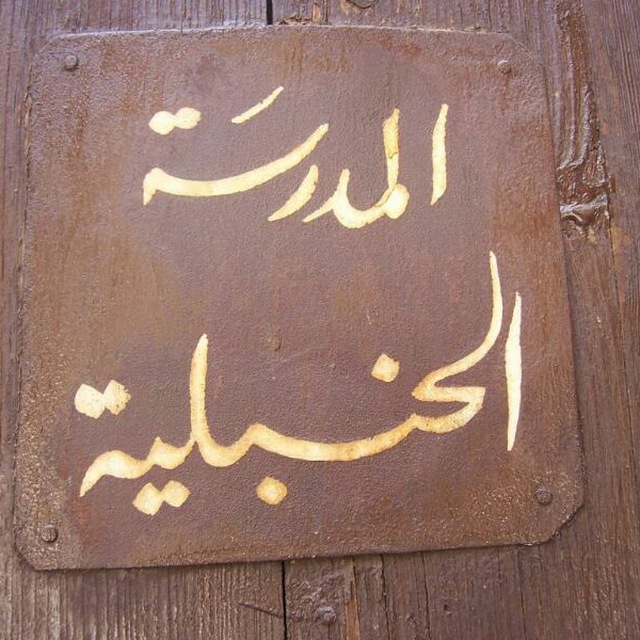 المدرسة
الحنبلية